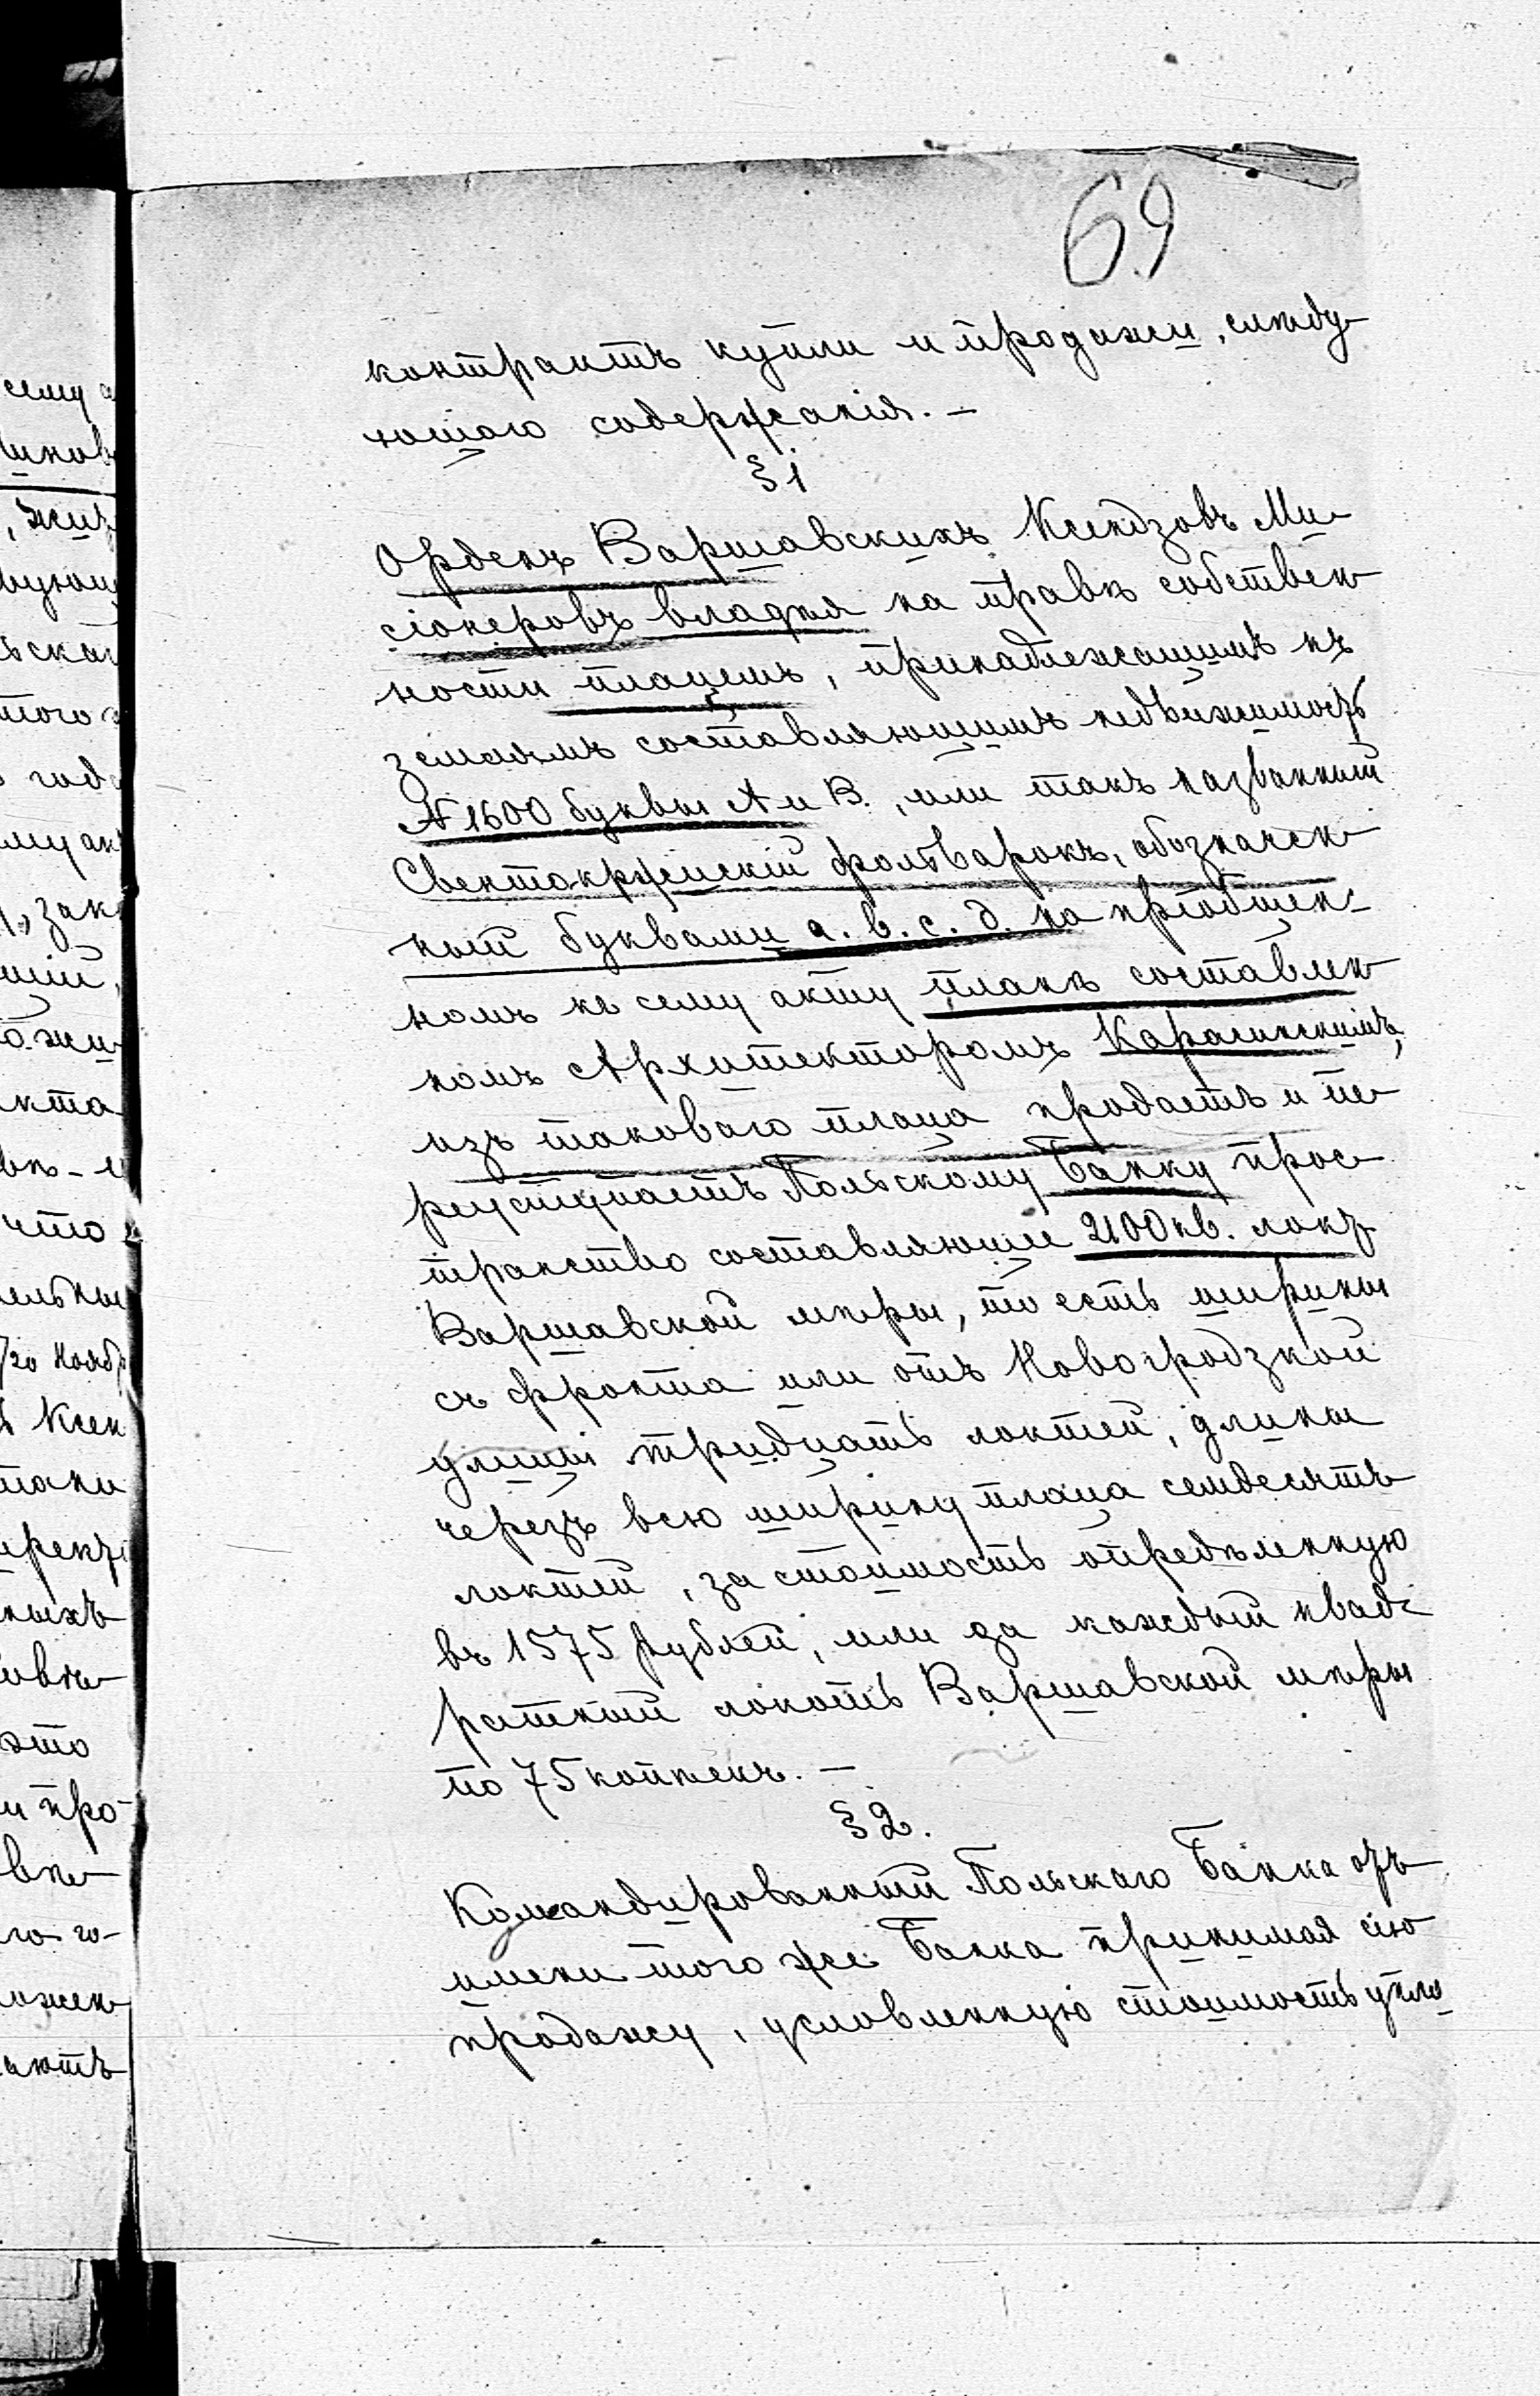 69
контрактъ купли и продажи, слѣду-
ющаго содержанія. —
§ 1
Орденъ Варшавскихъ Ксендзовъ Ми-
сіонеровъ владѣя на правѣ собствен-
ности плацемъ, принадлежащимъ къ
землямъ составляющимъ недвижимость
№ 1600 буквы А и В., или такъ названный
Свентокржискій фольварокъ, обозначен-
ный буквами а. в. с. д. на пріобщен-
номъ къ сему акту планѣ составлен-
номъ Архитекторомъ
изъ таковаго плаца продаетъ и пе-
реуступаетъ Польскому Банку прос-
транство составляющее 2100 кв. локт
Варшавской мѣры, то есть ширины
съ фронта или отъ Новогродзкой
улицы тридцать локтей, длины
черезъ всю ширину плаца семдесятъ
локтей, за стоимость опредѣленную
въ 1575 рублей, или за каждый квад-
ратный локоть Варшавской мѣры
по 75 копѣекъ. —
§ 2.
Командированный Польскаго Банка отъ
имени того же Банка принимая сію
продажу, условленную стоимость упла-
сему
ского
того
году
что
20 Нояб
Ксен
ныхъ
это
и про-